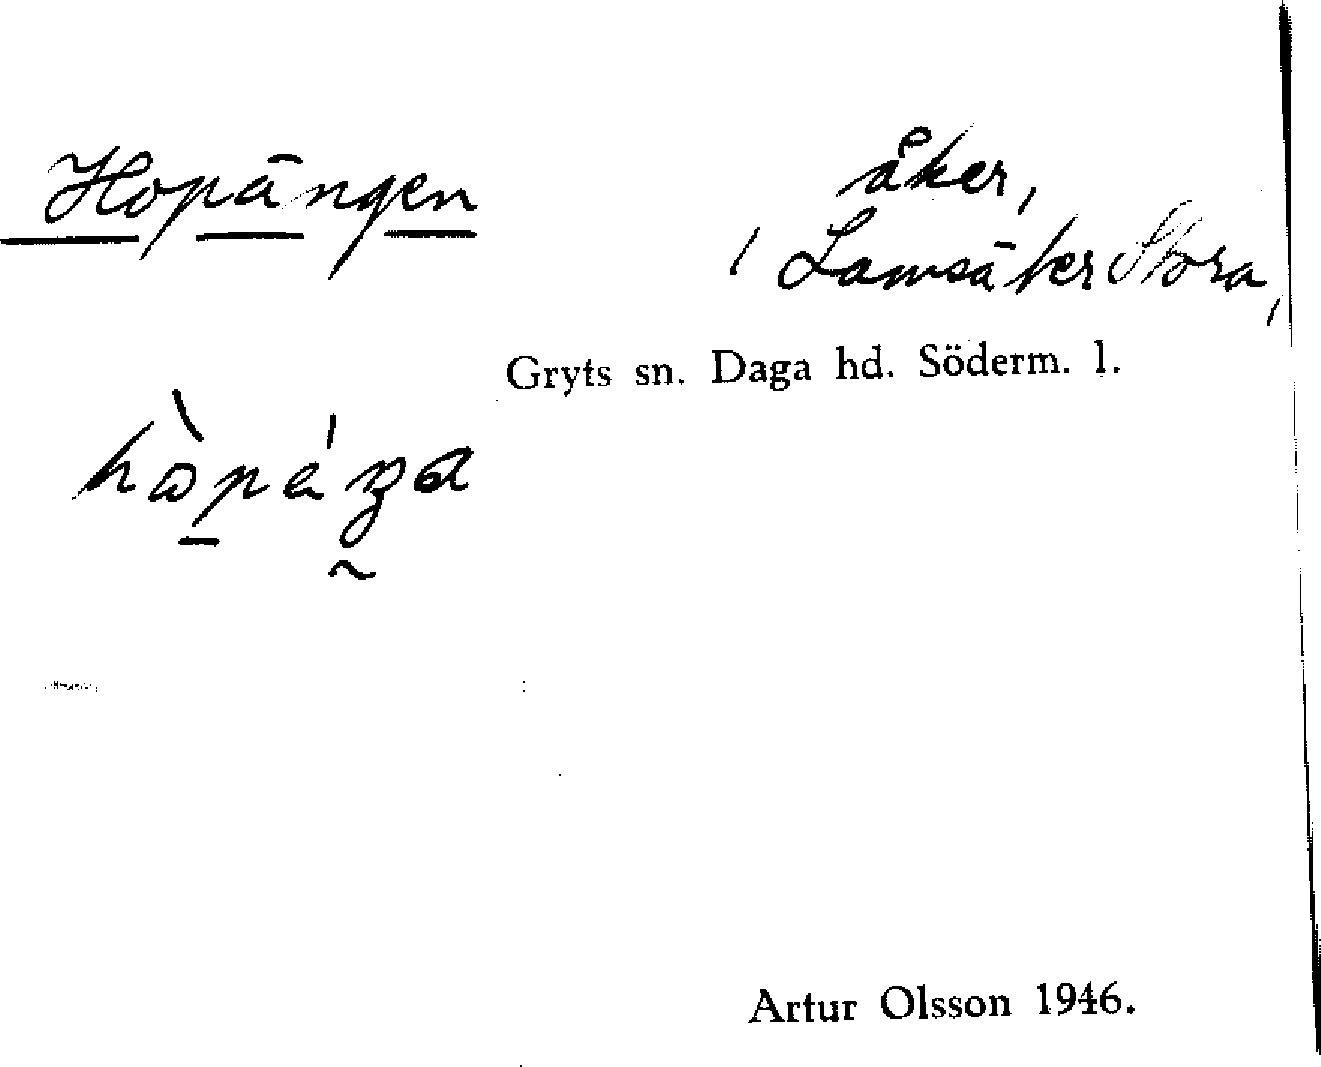 Hopängen
åker,
Lamsäter Stora,
Gryts sn. Daga hd. Söderm. l.
Artur Olsson 1946.